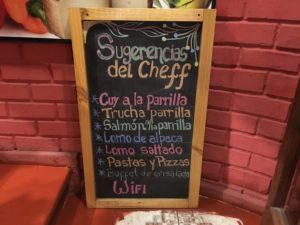 Sugerencias
del Cheff
* Cuy a la parrilla
* Trucha parrilla
* Salmón a la parrilla
* Lomo de alpaca
* Lomo saltado
* Pastas y Pizzas
* Buffet de ensalada
Wifi